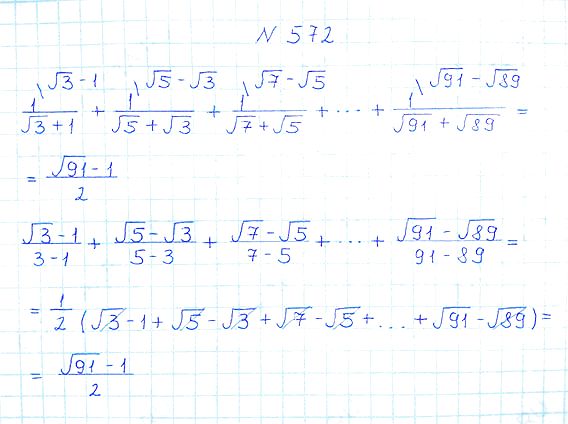 N 572
1\√3 - 1 / √3 + 1 + 1\√5 - √3 / √5 + √3 + 1\√7 - √5 / √7 + √5 + ... + 1\√91 - √89 / √91 + √89 =
= √91 - 1 / 2
√3 - 1 / 3 - 1 + √5 - √3 / 5 - 3 + √7 - √5 / 7 - 5 + ... + √91 - √89 / 91 - 89 =
= 1/2 (√3 - 1 + √5 - √3 + √7 - √5 + ... + √91 - √89) =
= √91 - 1 / 2